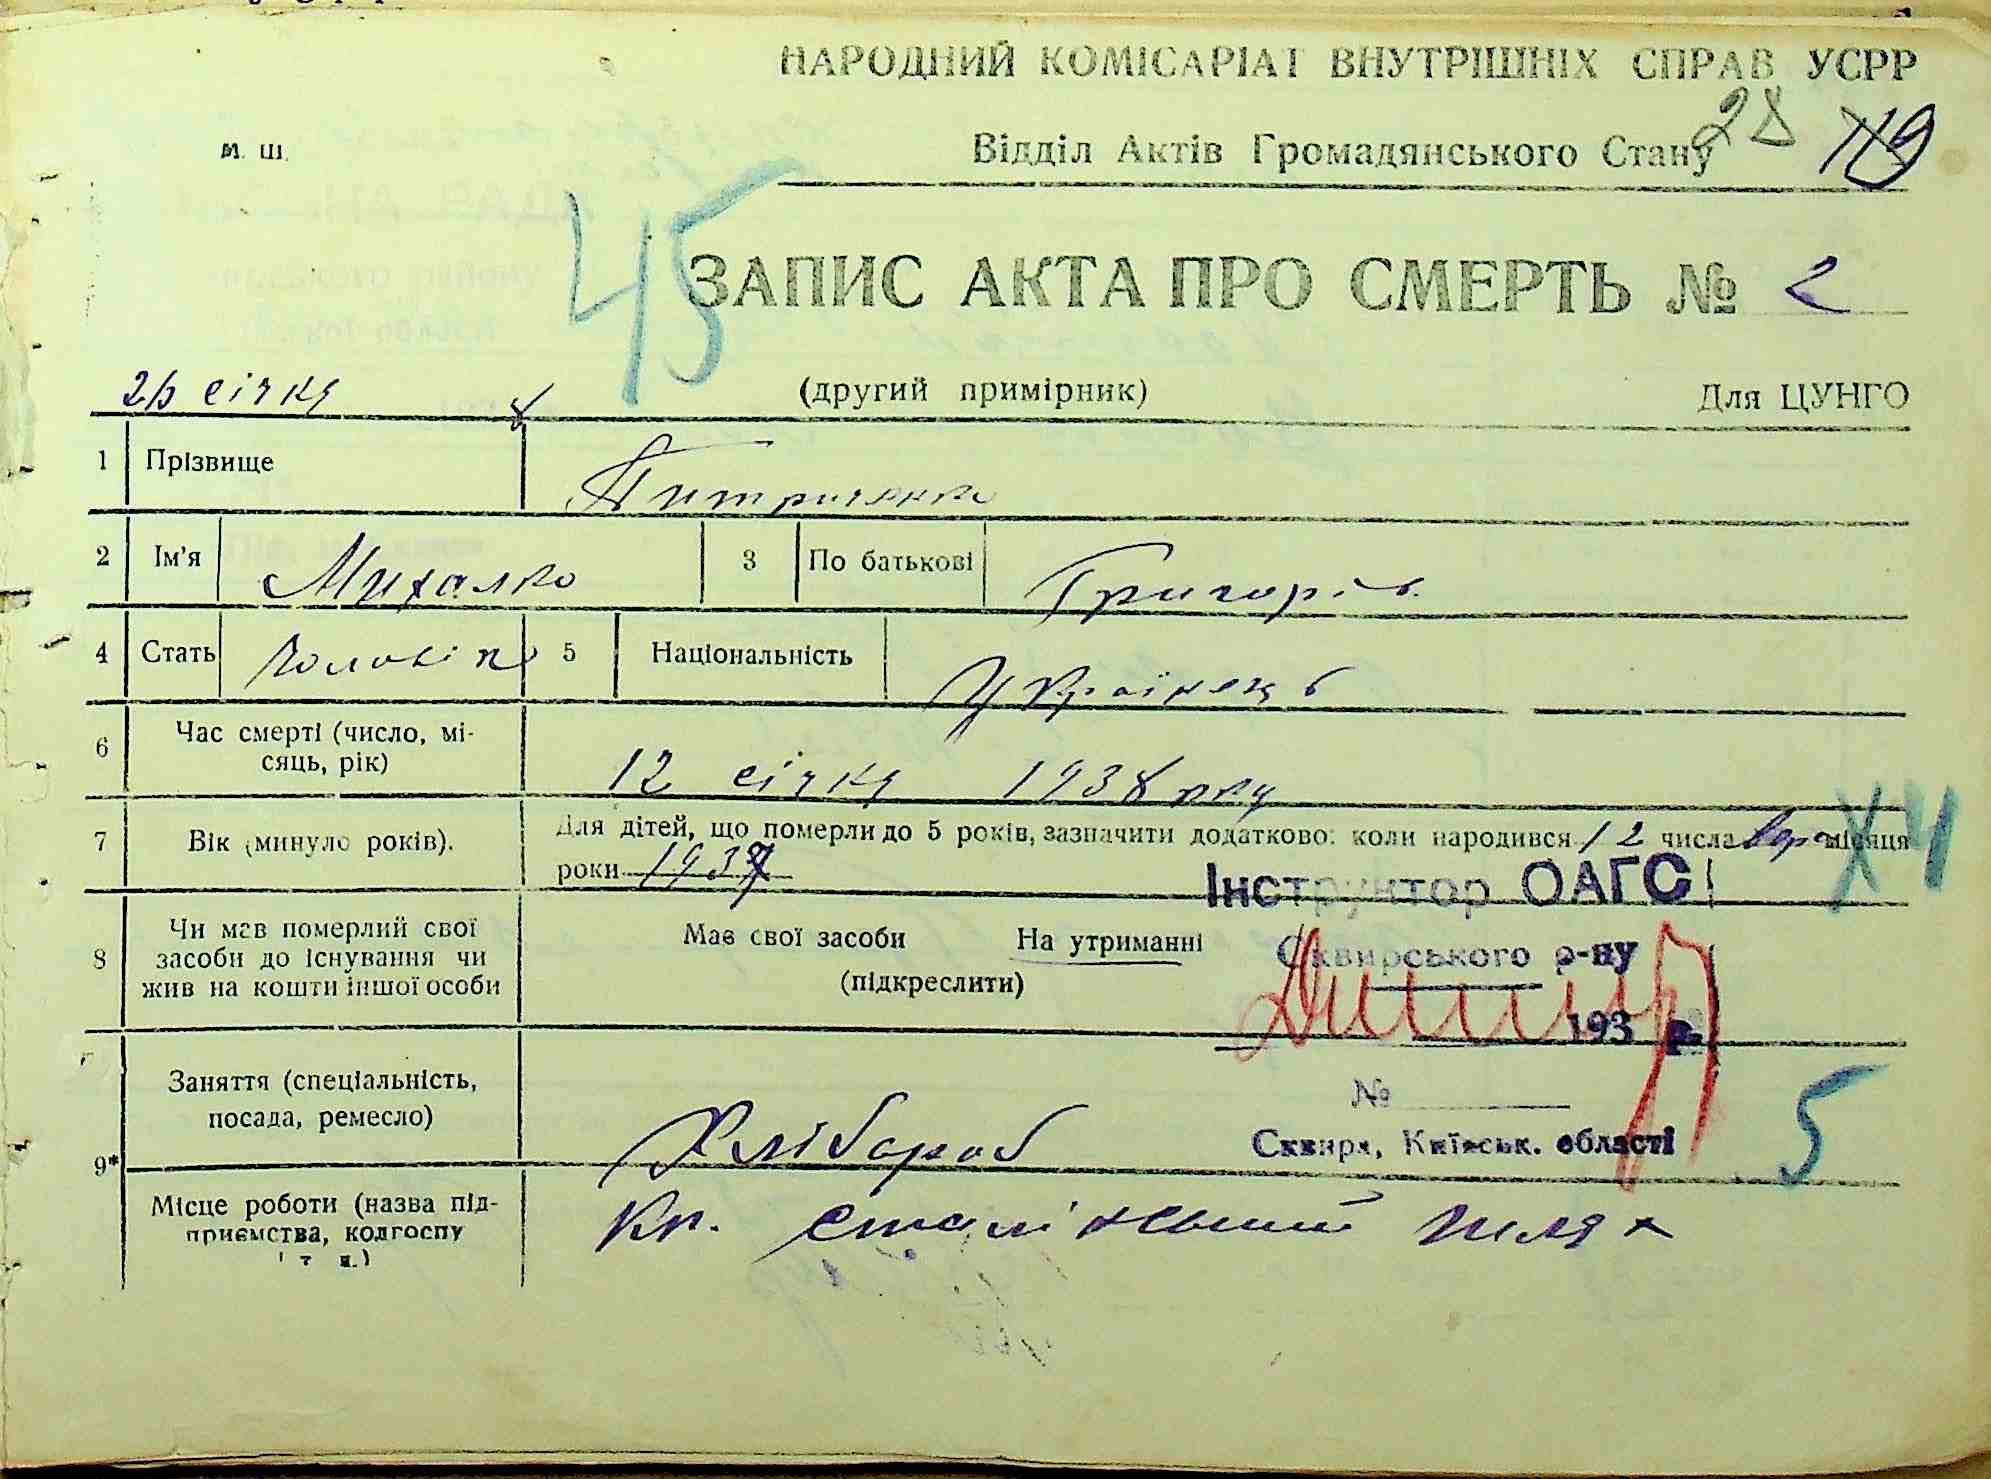 НАРОДНИЙ КОМІСАРІАТ ВНУТРІШНІХ СПРАВ УСРР
м. ш.
Відділ Актів Громадянського Стану
28 119
45
ЗАПИС АКТА ПРО СМЕРТЬ № 2
січня 8
(другий примірник)
Для ЦУНГО
1 Прізвище
2 Ім'я Михалко 3 По батькові Григорів.
4 Стать Чоловік 5 Національність Українець
6 Час смерті (число, мі-
сяць, рік)
12 січня 1938 року
7 Вік (минуло років).
Для дітей, що померли до 5 років, зазначити додатково: коли народився 12 числа вер місяця
роки 1937
Х4
Інструктор ОАГС
Сквирського р-ну
193 р.
№
Сквира, Київськ. області
8 Чи мав померлий свої
засоби до існування чи
жив на кошти іншої особи
Має свої засоби На утриманні
(підкреслити)
9* Заняття (спеціальність,
посада, ремесло)
Хлібороб
5
Місце роботи (назва під-
приємства, колгоспу
і т. н.)
Кл. Сталінський шлях